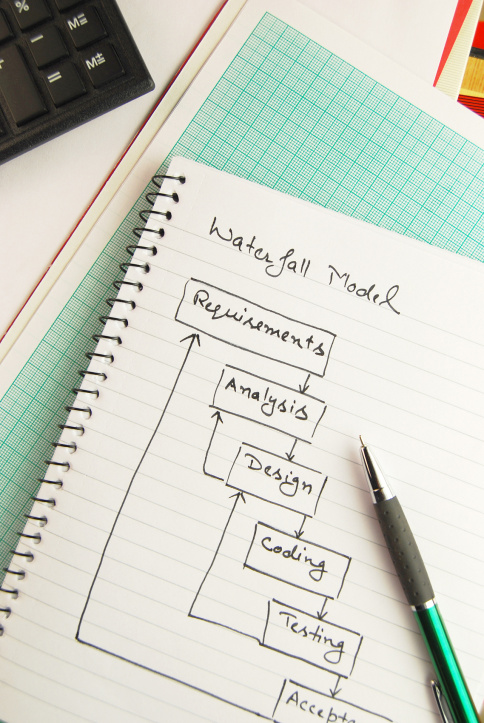 %
M=
−
=
M±
Waterfall Model
Requirements
Analysis
Design
Coding
Testing